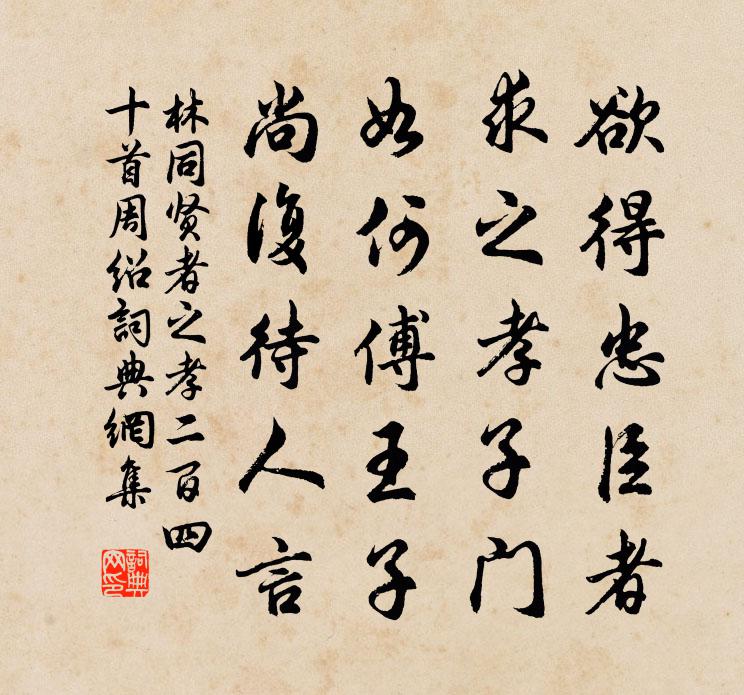 欲得忠臣者
求之孝子门
如何傅王子
尚復待人言
林同贤者之孝二百四
十首周绍詞典網集
詞典
网印